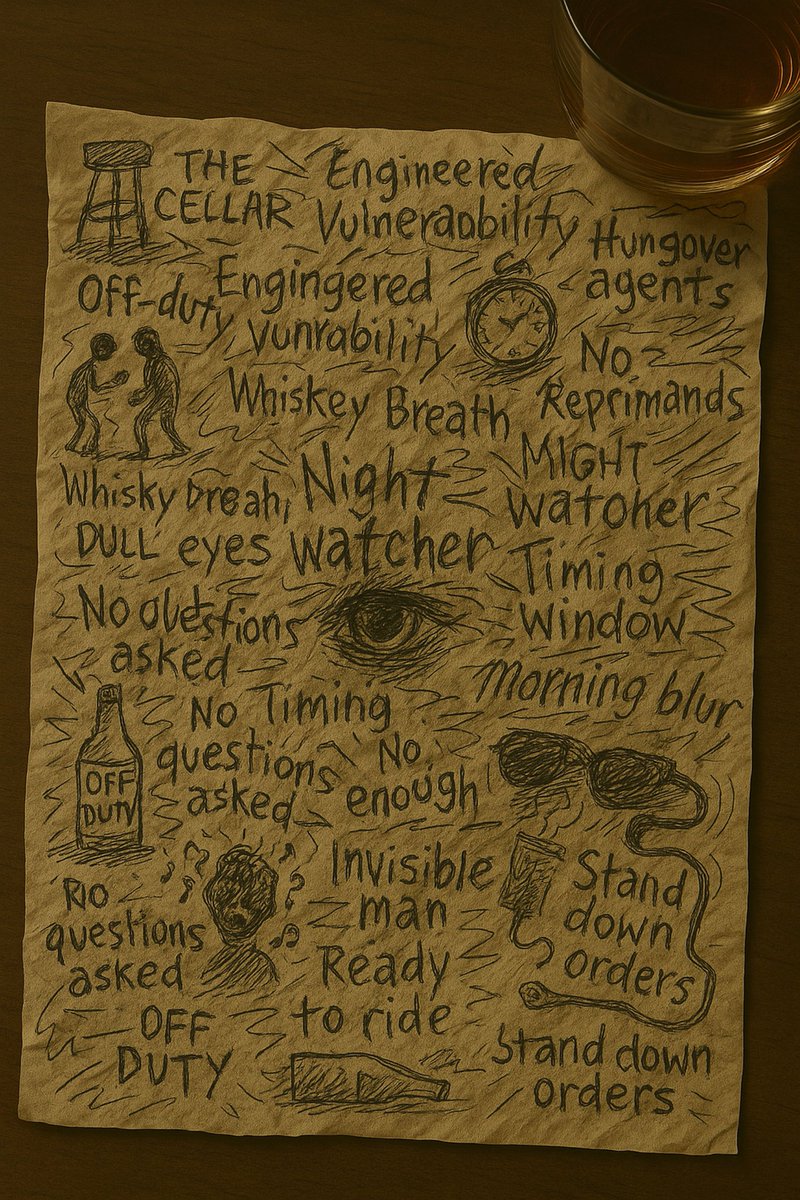 THE
CELLAR
Engineered
Vulneraobility
Hungover
agents
OFF-duty
Engingered
vunrability
No
Reprimands
Whiskey Breath
Whisky breah,
DULL eyes
Night
watcher
MIGHT
watoher
Timing
window
No questions
asked
Morning blur
No Timing
questions
asked
No
enough
OFF
DUTY
Invisible
man
Ready
to ride
Stand
down
orders
questions
asked
OFF
DUTY
Stand down
orders